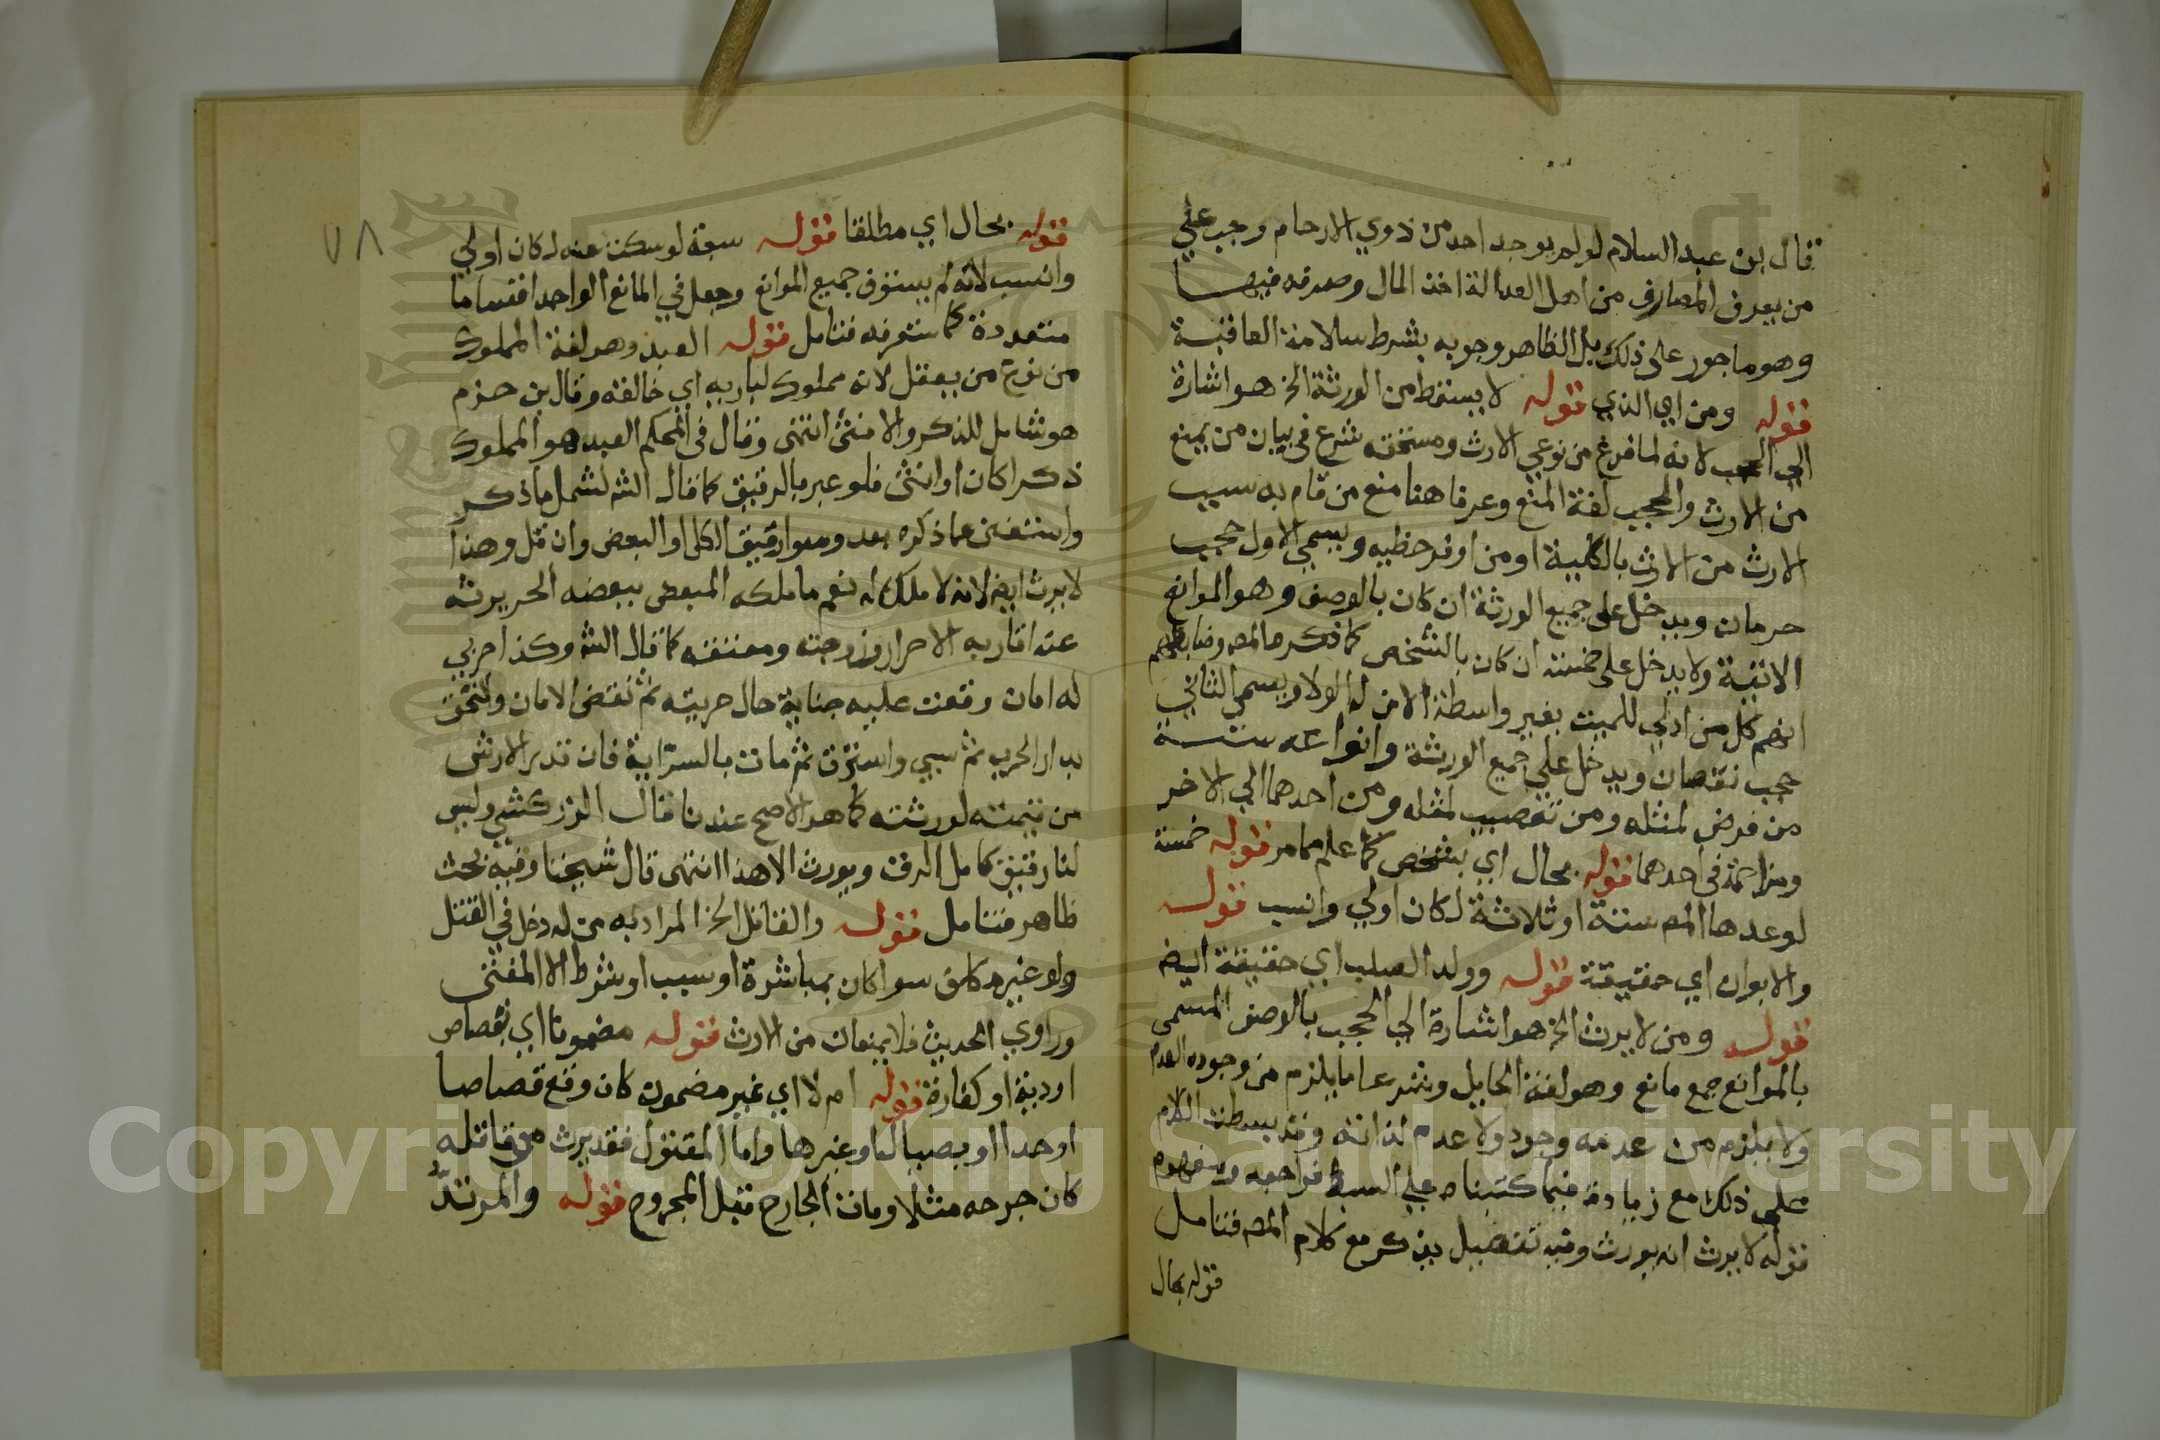 قال بن عبد السلام لو لم يوجد احد من ذوي الارحام وجب علي
من يعرف المصارف من اهل العدالة اخذ المال وصرفه فيها
وهو ماجور على ذلك بل الظاهر وجوبه بشرط سلامة العاقبة
قوله ومن اي الذي قوله لا يسقط من الورثة الخ هو اشارة
الي الحجب لانه لما فرغ من نوعي الارث ومستحقه شرع في بيان من يمنع
من الارث والحجب لغة المنع وعرفا هنا منع من قام به سبب
الارث من الارث بالكلية او من اوفر حظيه ويسمي الاول حجب
حرمان ويدخل على جميع الورثة ان كان بالوصف وهو الموانع
الاتية ولا يدخل على خمسة ان كان بالشخص كما ذكرها المصر وضابطهم
انهم كل من ادلي للميت بغير واسطة الا من له الولا ويسمي الثاني
حجب نقصان ويدخل علي جميع الورثة وانواعه ستة
من فرض لمثله ومن تعصيب لمثله ومن احدهما الي الاخر
ومزاحمة في احدهما قوله بحال اي بشخص كما علم مما مر قوله خمسة
لو عدها المصر ستة او ثلاثة لكان اولي وانسب قوله
والابوان اي حقيقة قوله وولد الصلب اي حقيقة ايضا
قوله ومن لا يرث الخ هو اشارة الي الحجب بالوصف المسمي
بالموانع جمع مانع وهو لغة الحايل وشرعا ما يلزم من وجوده العدم
ولا يلزم من عدمه وجود ولا عدم لذاته وقد بسطت الكلام
علي ذلك مع زيادة فيما كتبناه علي السبط فراجعه ومفهوم
قوله لا يرث انه يورث وفيه تفصيل يذكر مع كلام المصر فتامل
قوله بحال
٧٨
قوله بحال اي مطلقا قوله سبعة لو سكت عنه لكان اولي
وانسب لانه لم يستوف جميع الموانع وجعل في المانع الواحد اقساما
متعددة كما ستعرفه فتامل قوله العبد وهو لغة المملوك
من نوع من يعقل لانه مملوك لباريه اي خالقه وقال بن حزم
هو شامل للذكر والانثى انتهى وقال في المحكم العبد هو المملوك
ذكرا كان او انثى فلو عبر بالرقيق كما قال الش لشمل ما ذكر
واستغنى عما ذكره بعد وسوا رقيق الكل او البعض وان قل وهذا
لا يرث ايضا لانه لا ملك له نعم ما ملكه المبعض ببعضه الحر يرثه
عنه اقاربه الاحرار وزوجته ومعتقه كما قال الش وكذا حربي
له امان وقعت عليه جناية حال حريته ثم نقض الامان والتحق
بدار الحرب ثم سبي واسترق ثم مات بالسراية فان قدر الارش
من قيمته لورثته كما هو الاصح عندنا قال الزركشي وليس
لنا رقيق كامل الرق ويورث الا هذا انتهى قال شيخنا وفيه بحث
ظاهر فتامل قوله والقاتل الخ المراد به من له دخل في القتل
ولو غيره كامن سوا كان بمباشرة او سبب او شرط الا المفتي
وراوي الحديث فلا يمنعان من الارث قوله مضمونا اي بقصاص
او دية او كفارة قوله ام لا اي غير مضمون كان وقع قصاصا
او حدا او بصيال او غيرها واما المقتول فقد يرث من قاتله
كان جرحه مثلا ومات الجارح قبل المجروح قوله والمرتد
Copyright © King Saud University